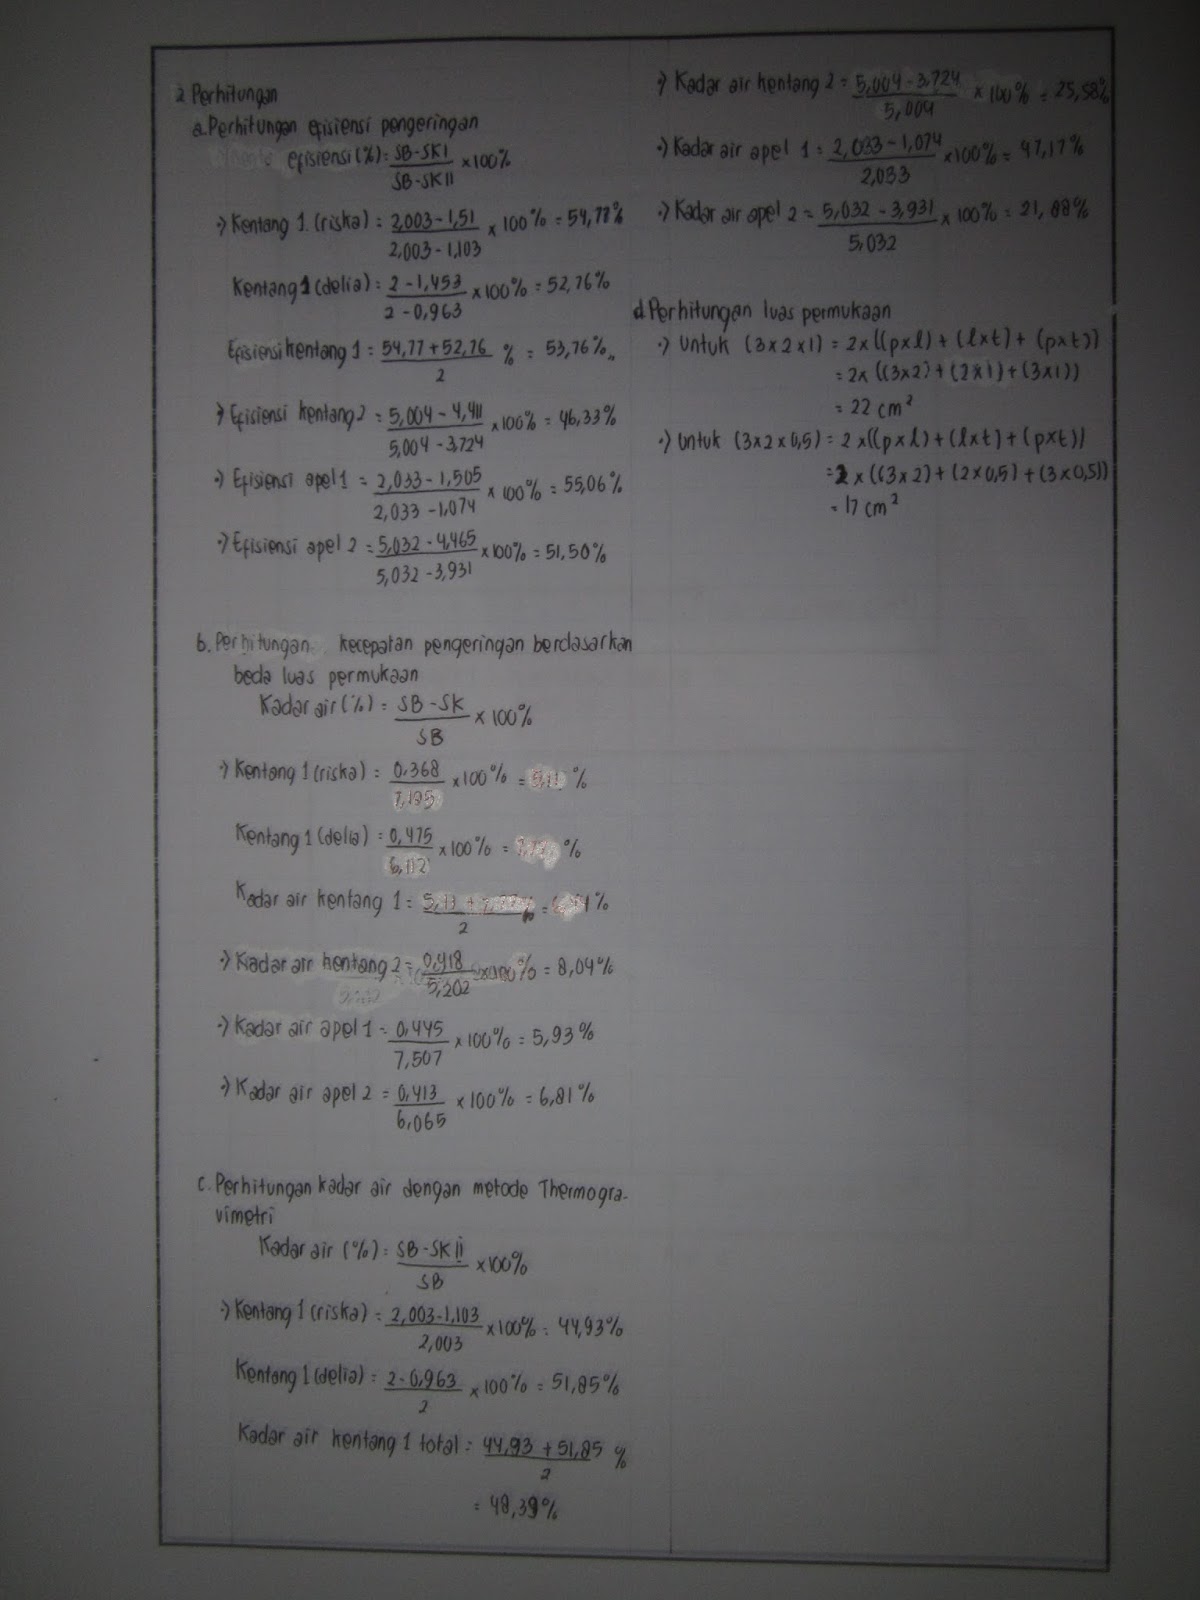 2 Perhitungan
a. Perhitungan efisiensi pengeringan
efisiensi (%) = SB-SKI / SB-SKII × 100%
·) Kentang 1. (riska) = 2,003-1,51 / 2,003-1,103 × 100% = 54,77%
Kentang 1 (delia) = 2-1,453 / 2-0,963 × 100% = 52,76%
Efisiensi kentang 1 = 54,77+52,76 / 2 % = 53,76%,,
·) Efisiensi kentang 2 = 5,004-4,411 / 5,004-3,724 × 100% = 46,33%
·) Efisiensi apel 1 = 2,033-1,505 / 2,033-1,074 × 100% = 55,06%
·) Efisiensi apel 2 = 5,032-4,465 / 5,032-3,931 × 100% = 51,50%
b. Perhitungan kecepatan pengeringan berdasarkan
beda luas permukaan
Kadar air (%) = SB-SK / SB × 100%
·) Kentang 1 (riska) = 0,368 / 7,195 × 100% = 5,11 %
Kentang 1 (delia) = 0,475 / 6,112 × 100% = %
Kadar air kentang 1 = 5,11 + / 2 = %
·) Kadar air kentang 2 = 0,418 / 5,202 × 100% = 8,04%
·) Kadar air apel 1 = 0,445 / 7,507 × 100% = 5,93%
·) Kadar air apel 2 = 0,413 / 6,065 × 100% = 6,81%
c. Perhitungan kadar air dengan metode Thermogra-
vimetri
Kadar air (%) = SB-SK II / SB × 100%
·) Kentang 1 (riska) = 2,003-1,103 / 2,003 × 100% = 44,93%
Kentang 1 (delia) = 2-0,963 / 2 × 100% = 51,85%
Kadar air kentang 1 total = 44,93 + 51,85 / 2 %
= 48,39%
·) Kadar air kentang 2 = 5,004-3,724 / 5,004 × 100% = 25,58%
·) Kadar air apel 1 = 2,033-1,074 / 2,033 × 100% = 47,17%
·) Kadar air apel 2 = 5,032-3,931 / 5,032 × 100% = 21,88%
d. Perhitungan luas permukaan
·) Untuk (3×2×1) = 2×((p×l)+(l×t)+(p×t))
= 2×((3×2)+(2×1)+(3×1))
= 22 cm²
·) Untuk (3×2×0,5) = 2×((p×l)+(l×t)+(p×t))
= 2×((3×2)+(2×0,5)+(3×0,5))
= 17 cm²